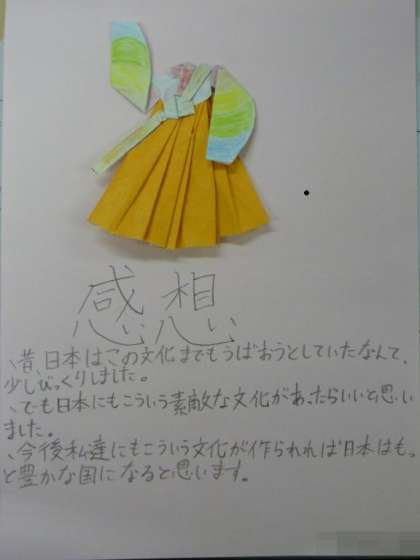 感想
、昔、日本はこの文化までもうばおうとしていたなんて、
少しびっくりしました。
、でも日本にもこういう素敵な文化があったらいいと思い
ました。
、今後私達にもこういう文化が作られれば日本はも
っと豊かな国になると思います。